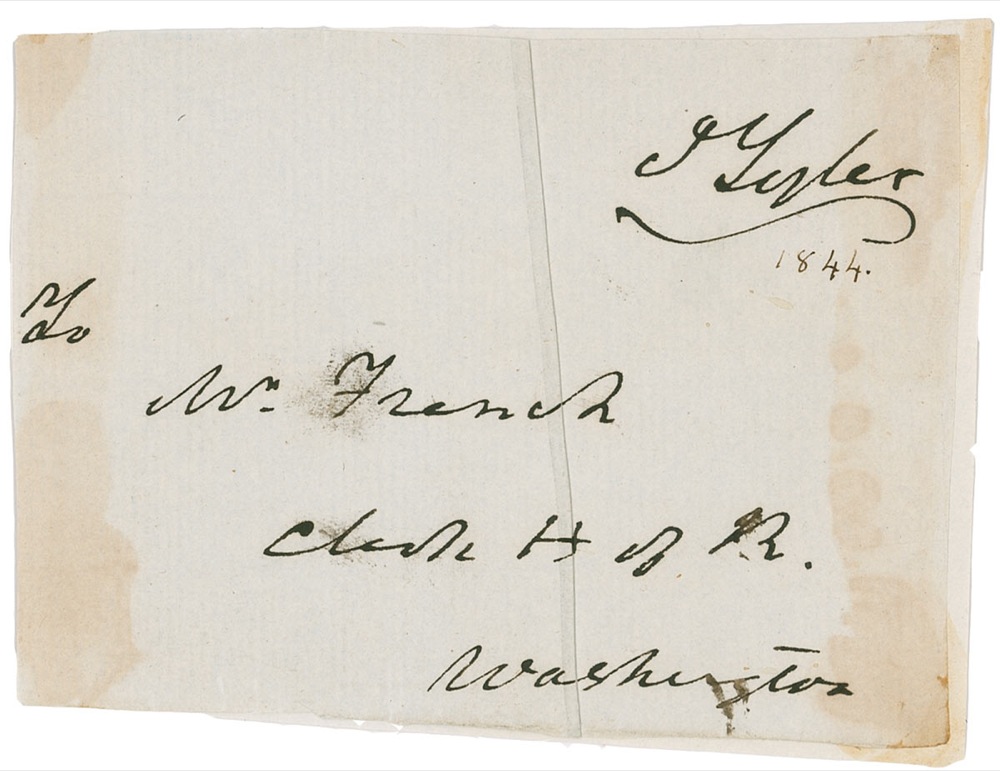 J Tyler
1844.
To
Mr. French
Clerk H of R.
Washington